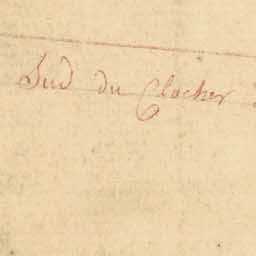 Sud du Clocher